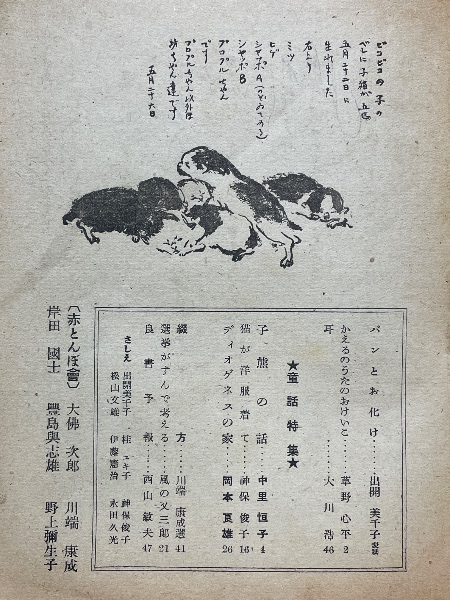 ピコピコの子の
五月二十二日に
生れました
右より
ミツ
ヒゲ
シャッポA
シャッポB
プロプルちゃん
です
プロプルちゃん以外は
坊ちゃん達です
五月二十六日
パンとお化け……出開美千子
かえるのうたのおけいこ……草野心平 2
耳……大川浩 46
★童話特集★
子熊の話……中里恒子 4
猫が洋服着て……神保俊子 16
ディオゲネスの家……岡本良雄 26
綴方……川端康成選 41
選挙がすんで考える……風の又三郎 21
良書予報……西山敏夫 47
さしえ 出開美千子 桂ユキ子 神保俊子
松山文雄 伊藤憲治 永田久光
〔赤とんぼ會〕 大佛次郎 川端康成
岸田國士 豐島與志雄 野上彌生子